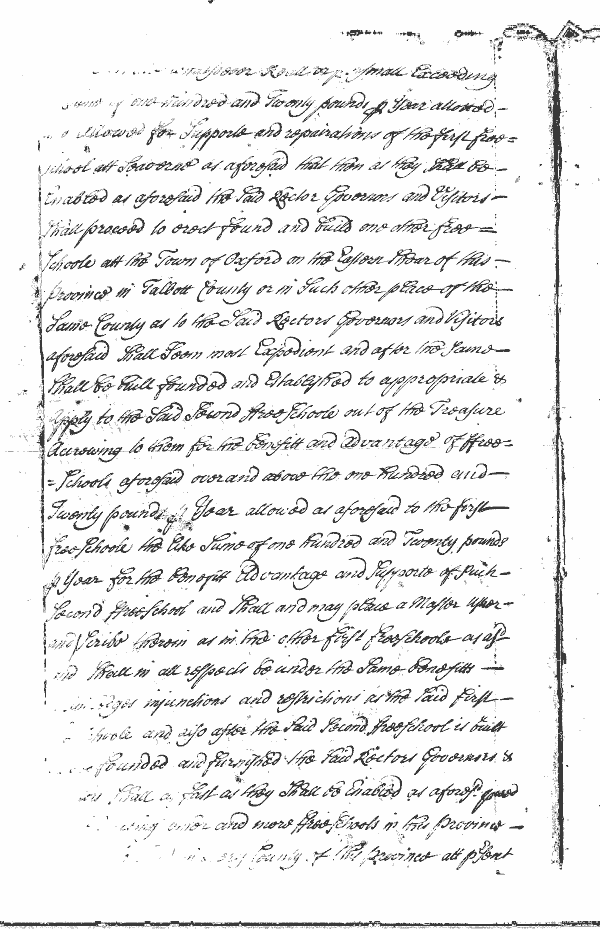 Reall or psonall Exceeding
Sume of one hundred and Twenty pounds p Year allowed
allowed for Supporte and repairations of the first free=
school att Seaverne as aforesaid that then as they shall be
Enabled as aforesaid the Said Rector Governors and Visitors
Shall proceed to erect found and build one other free=
Schoole att the Town of Oxford on the Eastern Shoar of this
Province in Talbott County or in Such other place of the
Same County as to the Said Rectors Governors and Visitors
aforesaid Shall Seem most Expedient and after the Same
Shall be built founded and Established to appropriate &
Apply to the Said Second ffree Schoole out of the Treasure
Accrewing to them for the benefitt and advantage of ffree=
=Schools aforesaid over and above the one hundred and
Twenty pounds p Year allowed as aforesaid to the first
free Schoole the like Sume of one hundred and Twenty pounds
p Year for the benefitt Advantage and Supporte of Such
Second ffree School and Shall and may place a Master usher
and Scribe therein as in the other first free schoole as afsd
and Shall in all respects be under the Same benefitts
injunctions and restrictions as the Said first
Schoole and also after the Said Second ffree School is built
founded and furnished the Said Rectors Governors &
Shall as fast as they Shall be Enabled as aforesd
other and more ffree schools in this Province
every County of this Province att psent